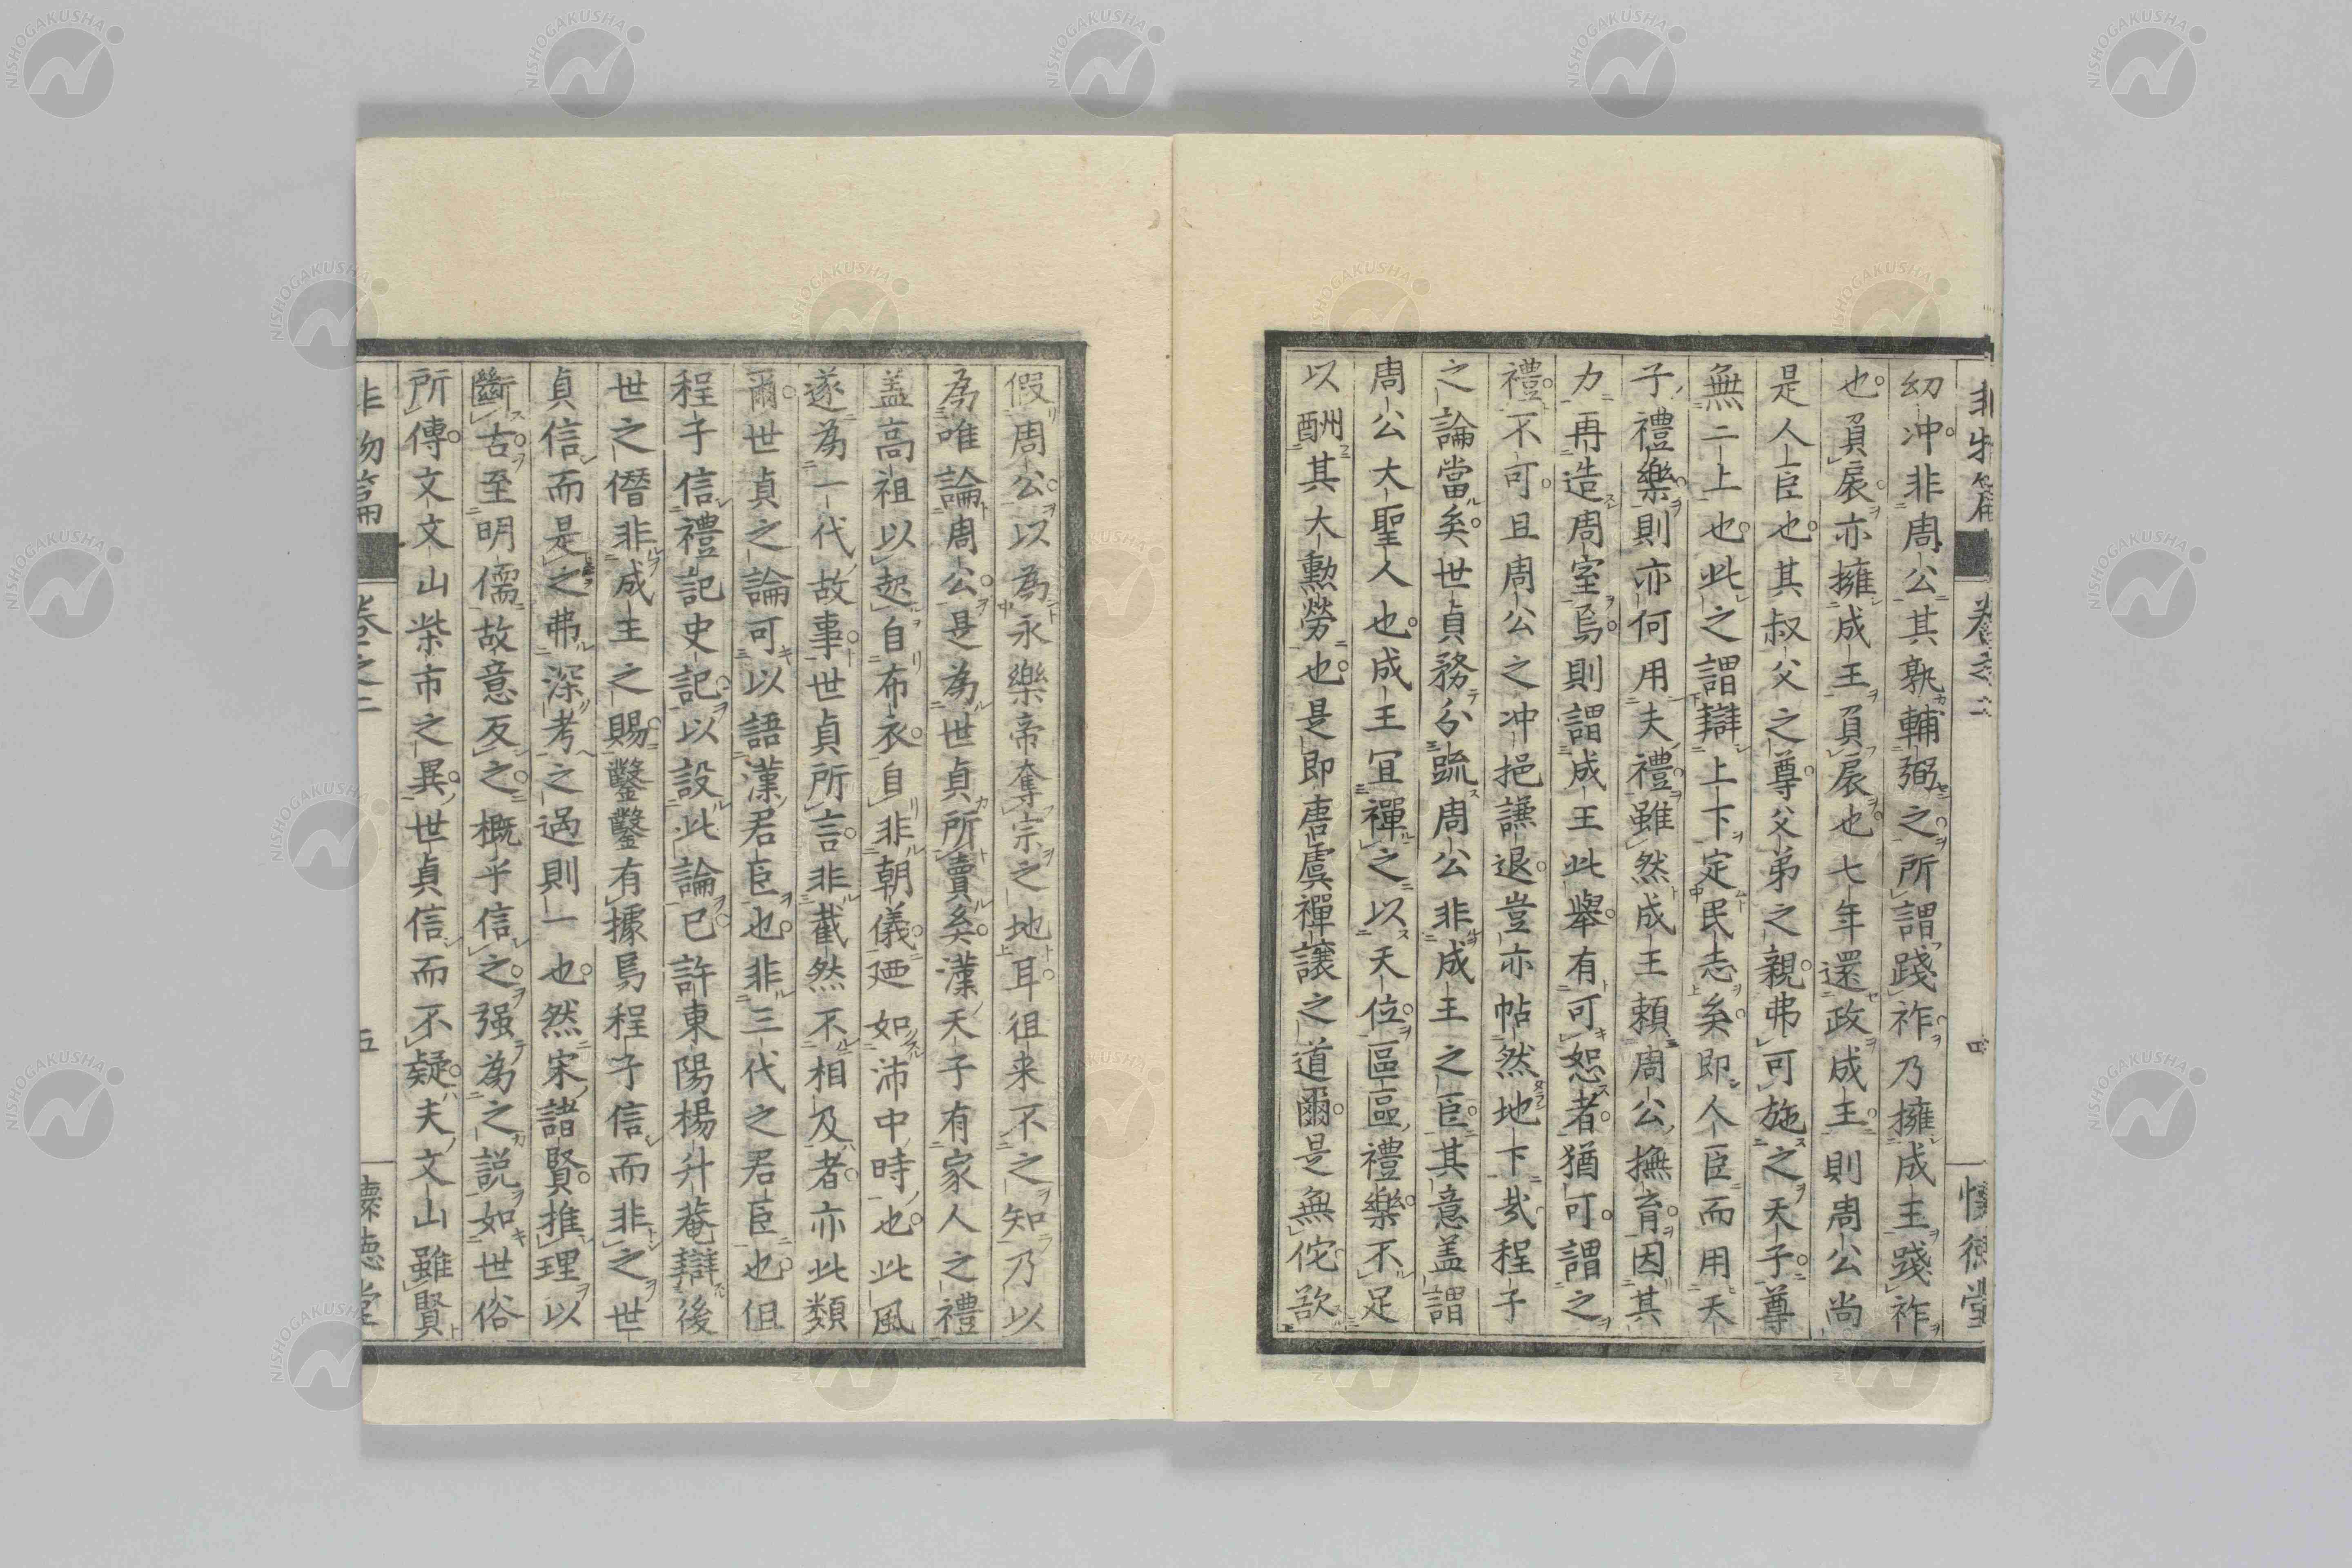 幼冲非周公其孰輔弼之所謂踐祚乃擁成王踐祚
也負扆亦擁成王負扆也七年還政成王則周公尚
是人臣也其叔父之尊父弟之親弗可施之天子尊
無二上也此之謂辯上下定民志矣即人臣而用天
子禮樂則亦何用夫禮雖然成王頼周公撫育因其
力再造周室焉則謂成王此舉有可恕者猶可謂之
禮不可且周公之冲挹謙退豈亦帖然地下哉程子
之論當矣世貞務分疏周公非成王之臣其意盖謂
周公大聖人也成王宜禪之以天位區區禮樂不足
以酬其大勲勞也是即唐虞禪讓之道爾是無佗欲
假周公以為永樂帝奪宗之地耳徂来不之知乃以
為唯論周公是為世貞所賣矣漢天子有家人之禮
盖高祖以起自布衣自非朝儀廼如沛中時也此風
遂為一代故事世貞所言非截然不相及者亦此類
爾世貞之論可以語漢君臣也非三代之君臣也但
程子信禮記史記以設此論已許東陽楊升菴辯後
世之僭非成王之賜鑿鑿有據焉程子信而非之世
貞信而是之弗深考之過則一也然宋諸賢推理以
斷古至明儒故意反之概乎信之强為之說如世俗
所傳文文山柴市之異世貞信而不疑夫文山雖賢
非物篇 卷之二 五 懷德堂